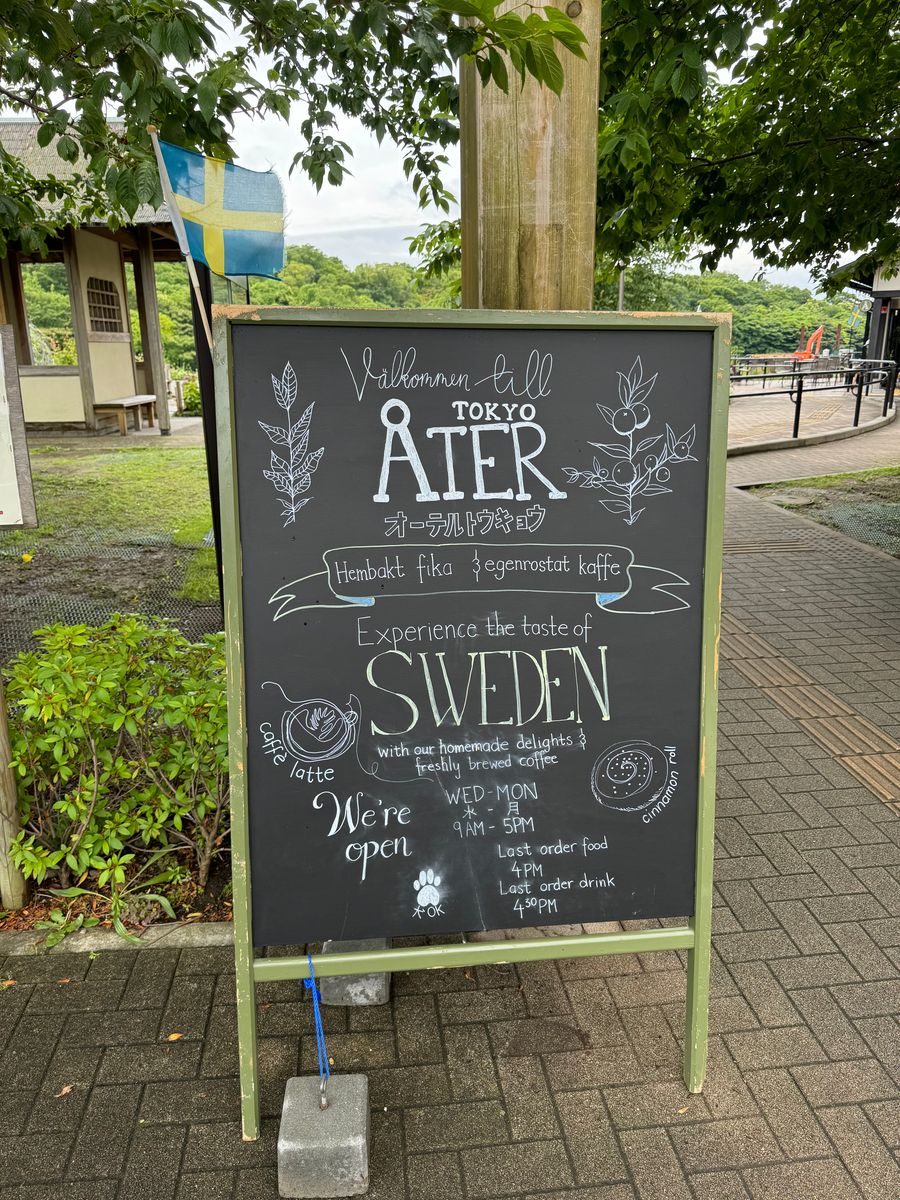 Välkommen till
TOKYO
ÅTER
オーテルトウキョウ
Hembakt fika & egenrostat kaffe
Experience the taste of
SWEDEN
with our homemade delights &
freshly brewed coffee
caffé latte
cinnamon roll
We're
open
WED - MON
水 月
9AM - 5PM
Last order food
4PM
Last order drink
4³⁰PM
犬OK